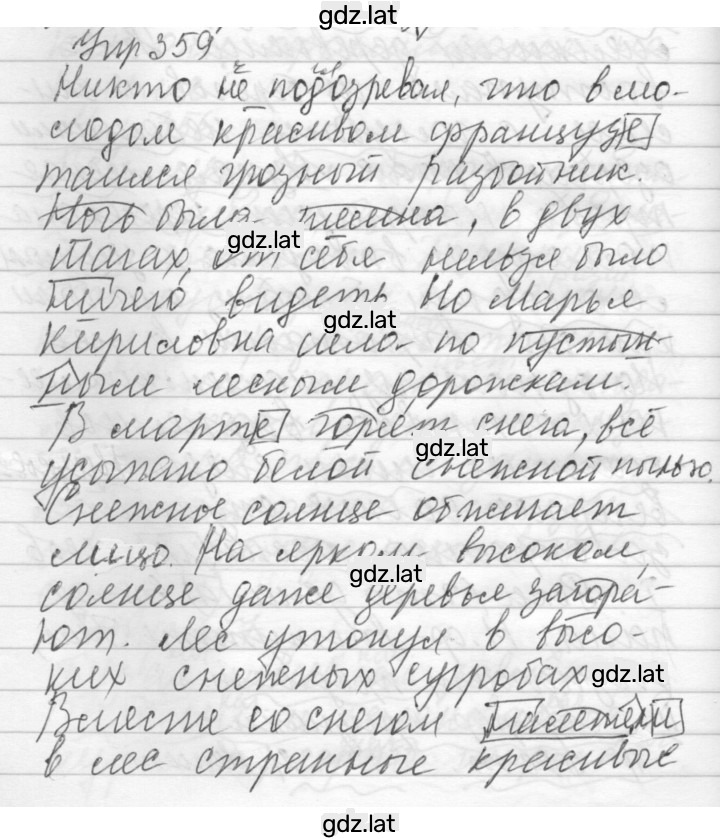 gdz.lat
Упр 359
Никто не подозревал, что в мо-
лодом красивом французе
таился грозный разбойник.
Ночь была темна, в двух
шагах от себя нельзя было
ничего видеть. Но Марья
Кириловна шла по пустын-
ным лесным дорожкам.
В марте горят снега, всё
усыпано белой снежной пылью.
Снежное солнце обжигает
лицо. На ярком высоком
солнце даже деревья загора-
ют. Лес утонул в высо-
ких снежных сугробах
Вместе со снегом
в лес странные красивые
gdz.lat
gdz.lat
gdz.lat
gdz.lat
gdz.lat
gdz.lat